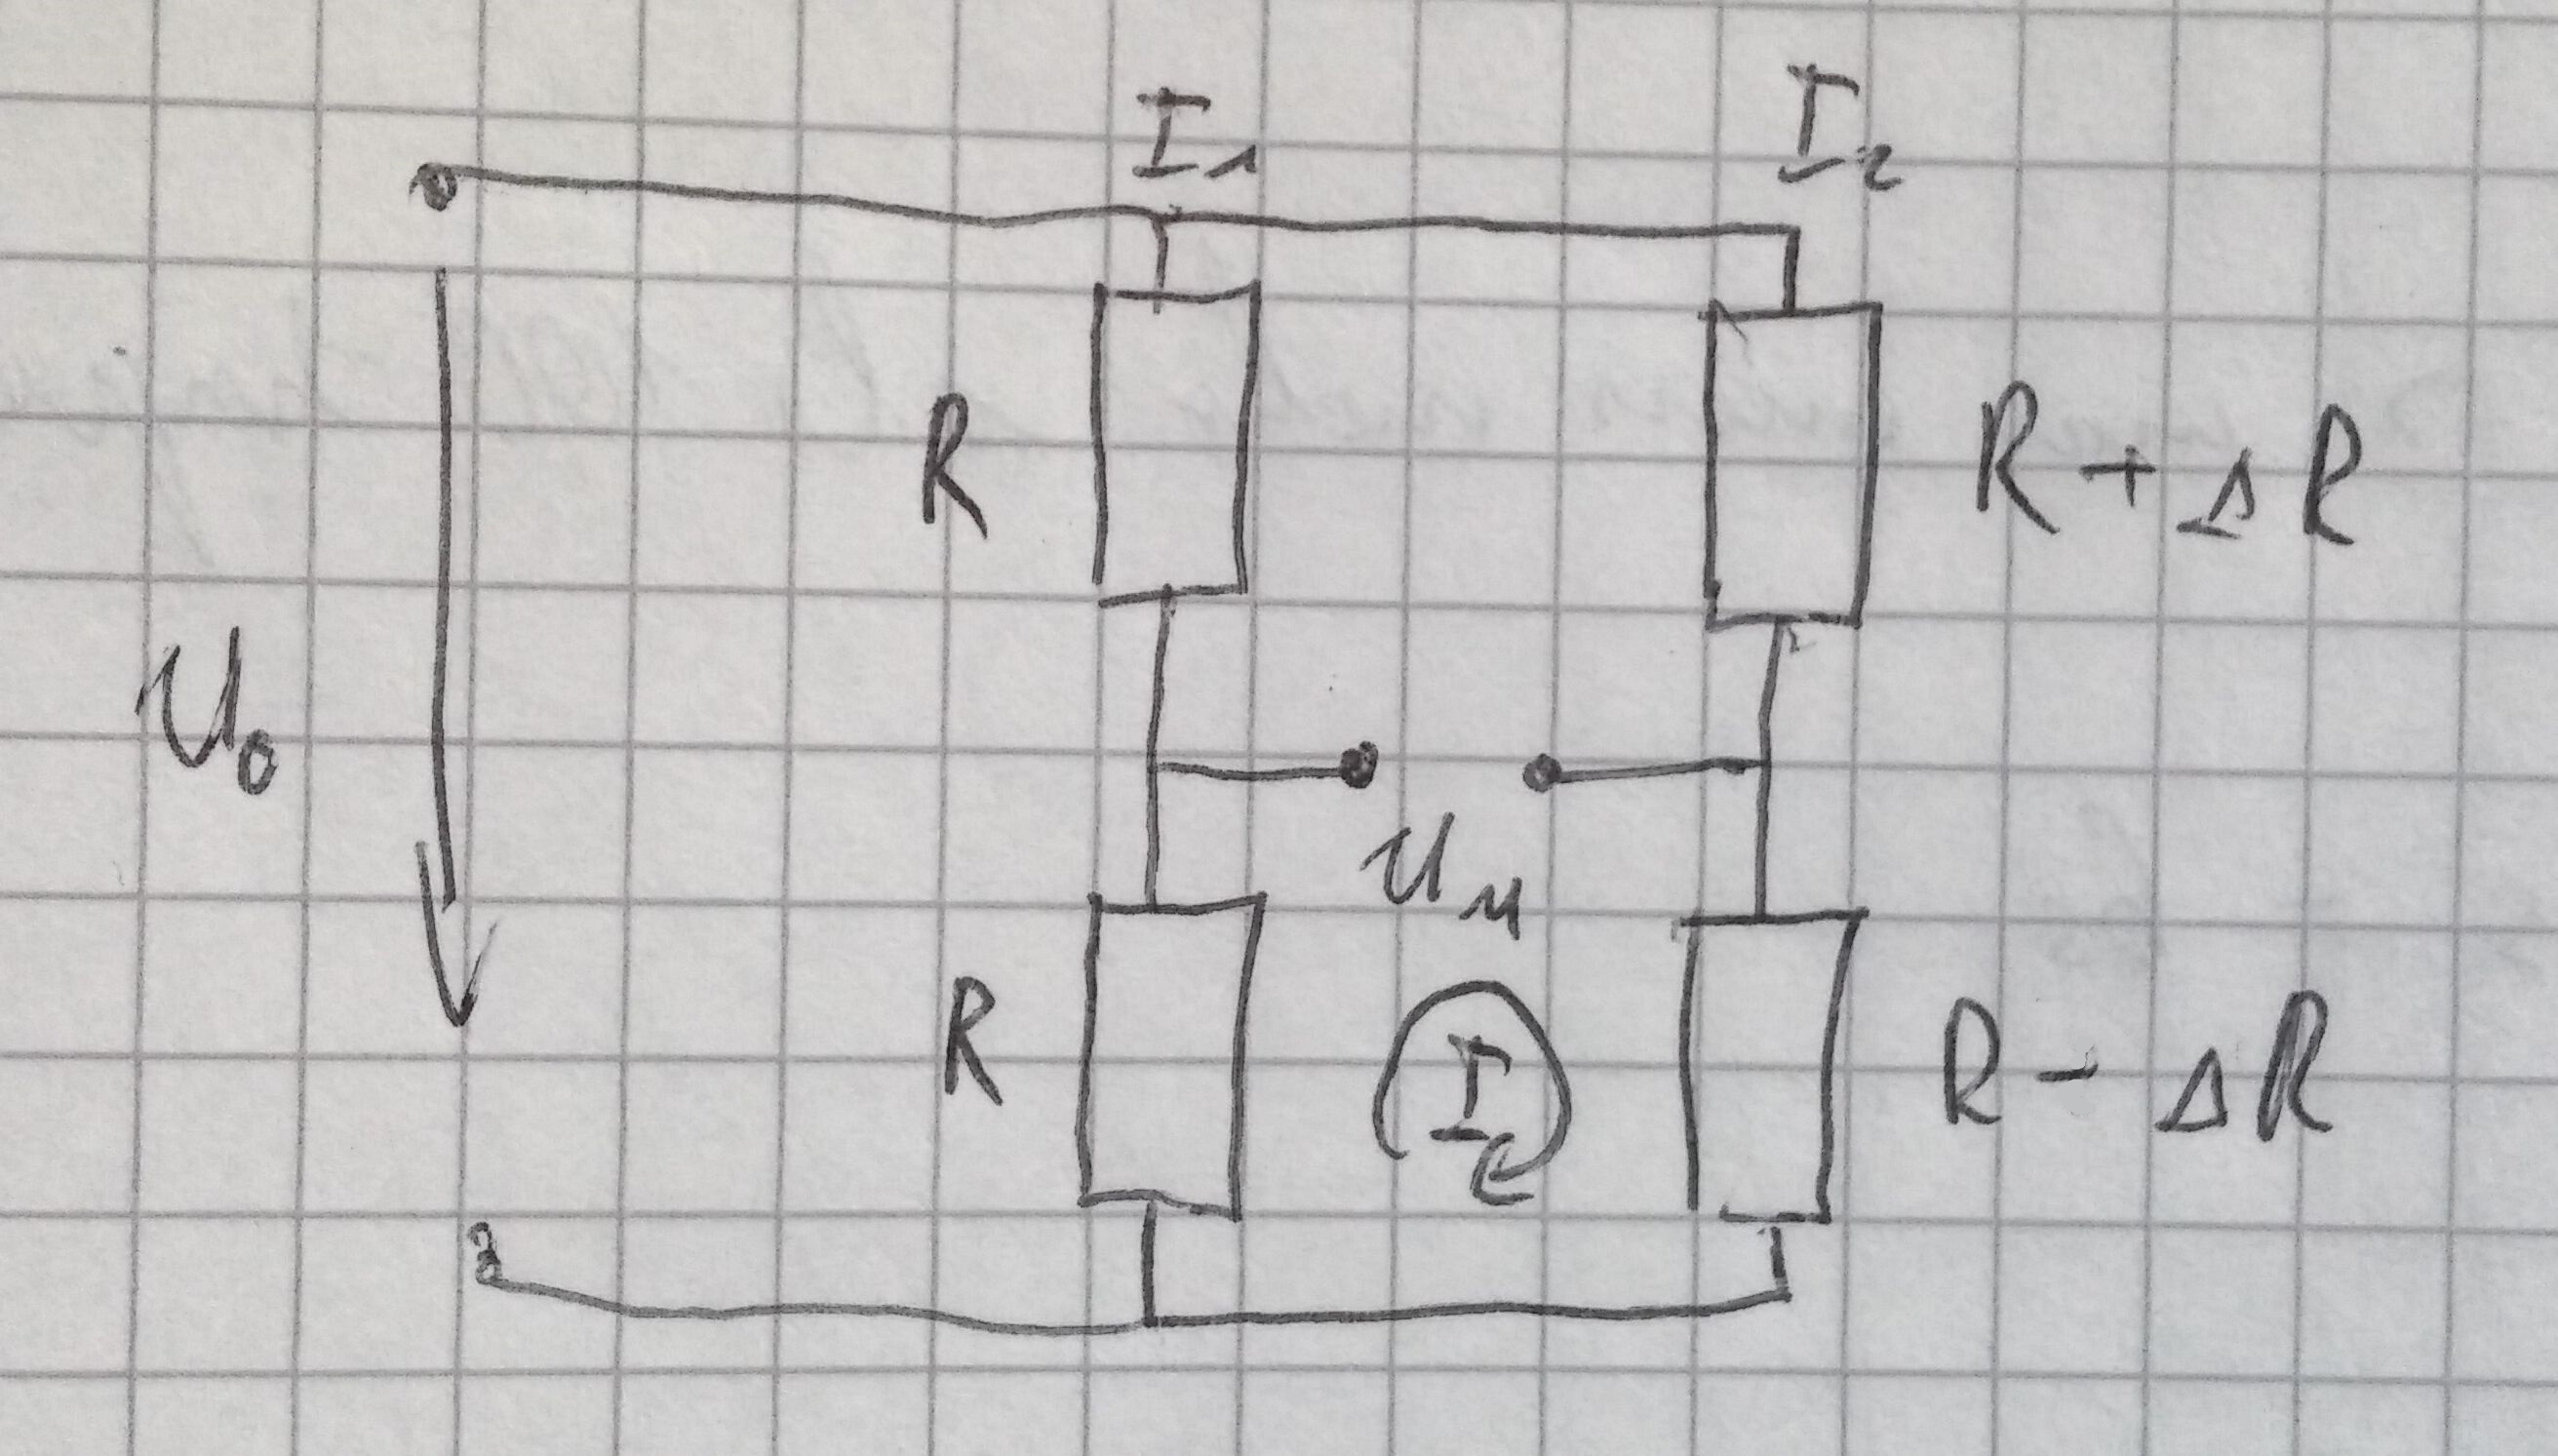 I₁ I₂
R R + ΔR
U₀
U_M
R I R - ΔR